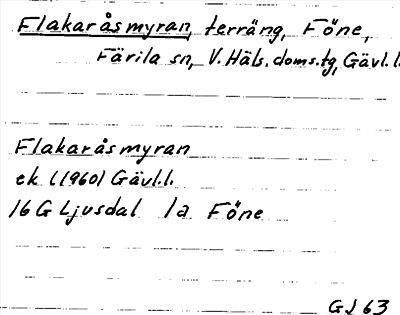 Flakaråsmyran, terräng, Föne,
Färila sn, V. Häls. doms.tg, Gävl.l.
Flakaråsmyran
ek (1960) Gävl.l.
16 G Ljusdal 1a Föne
GJ 63